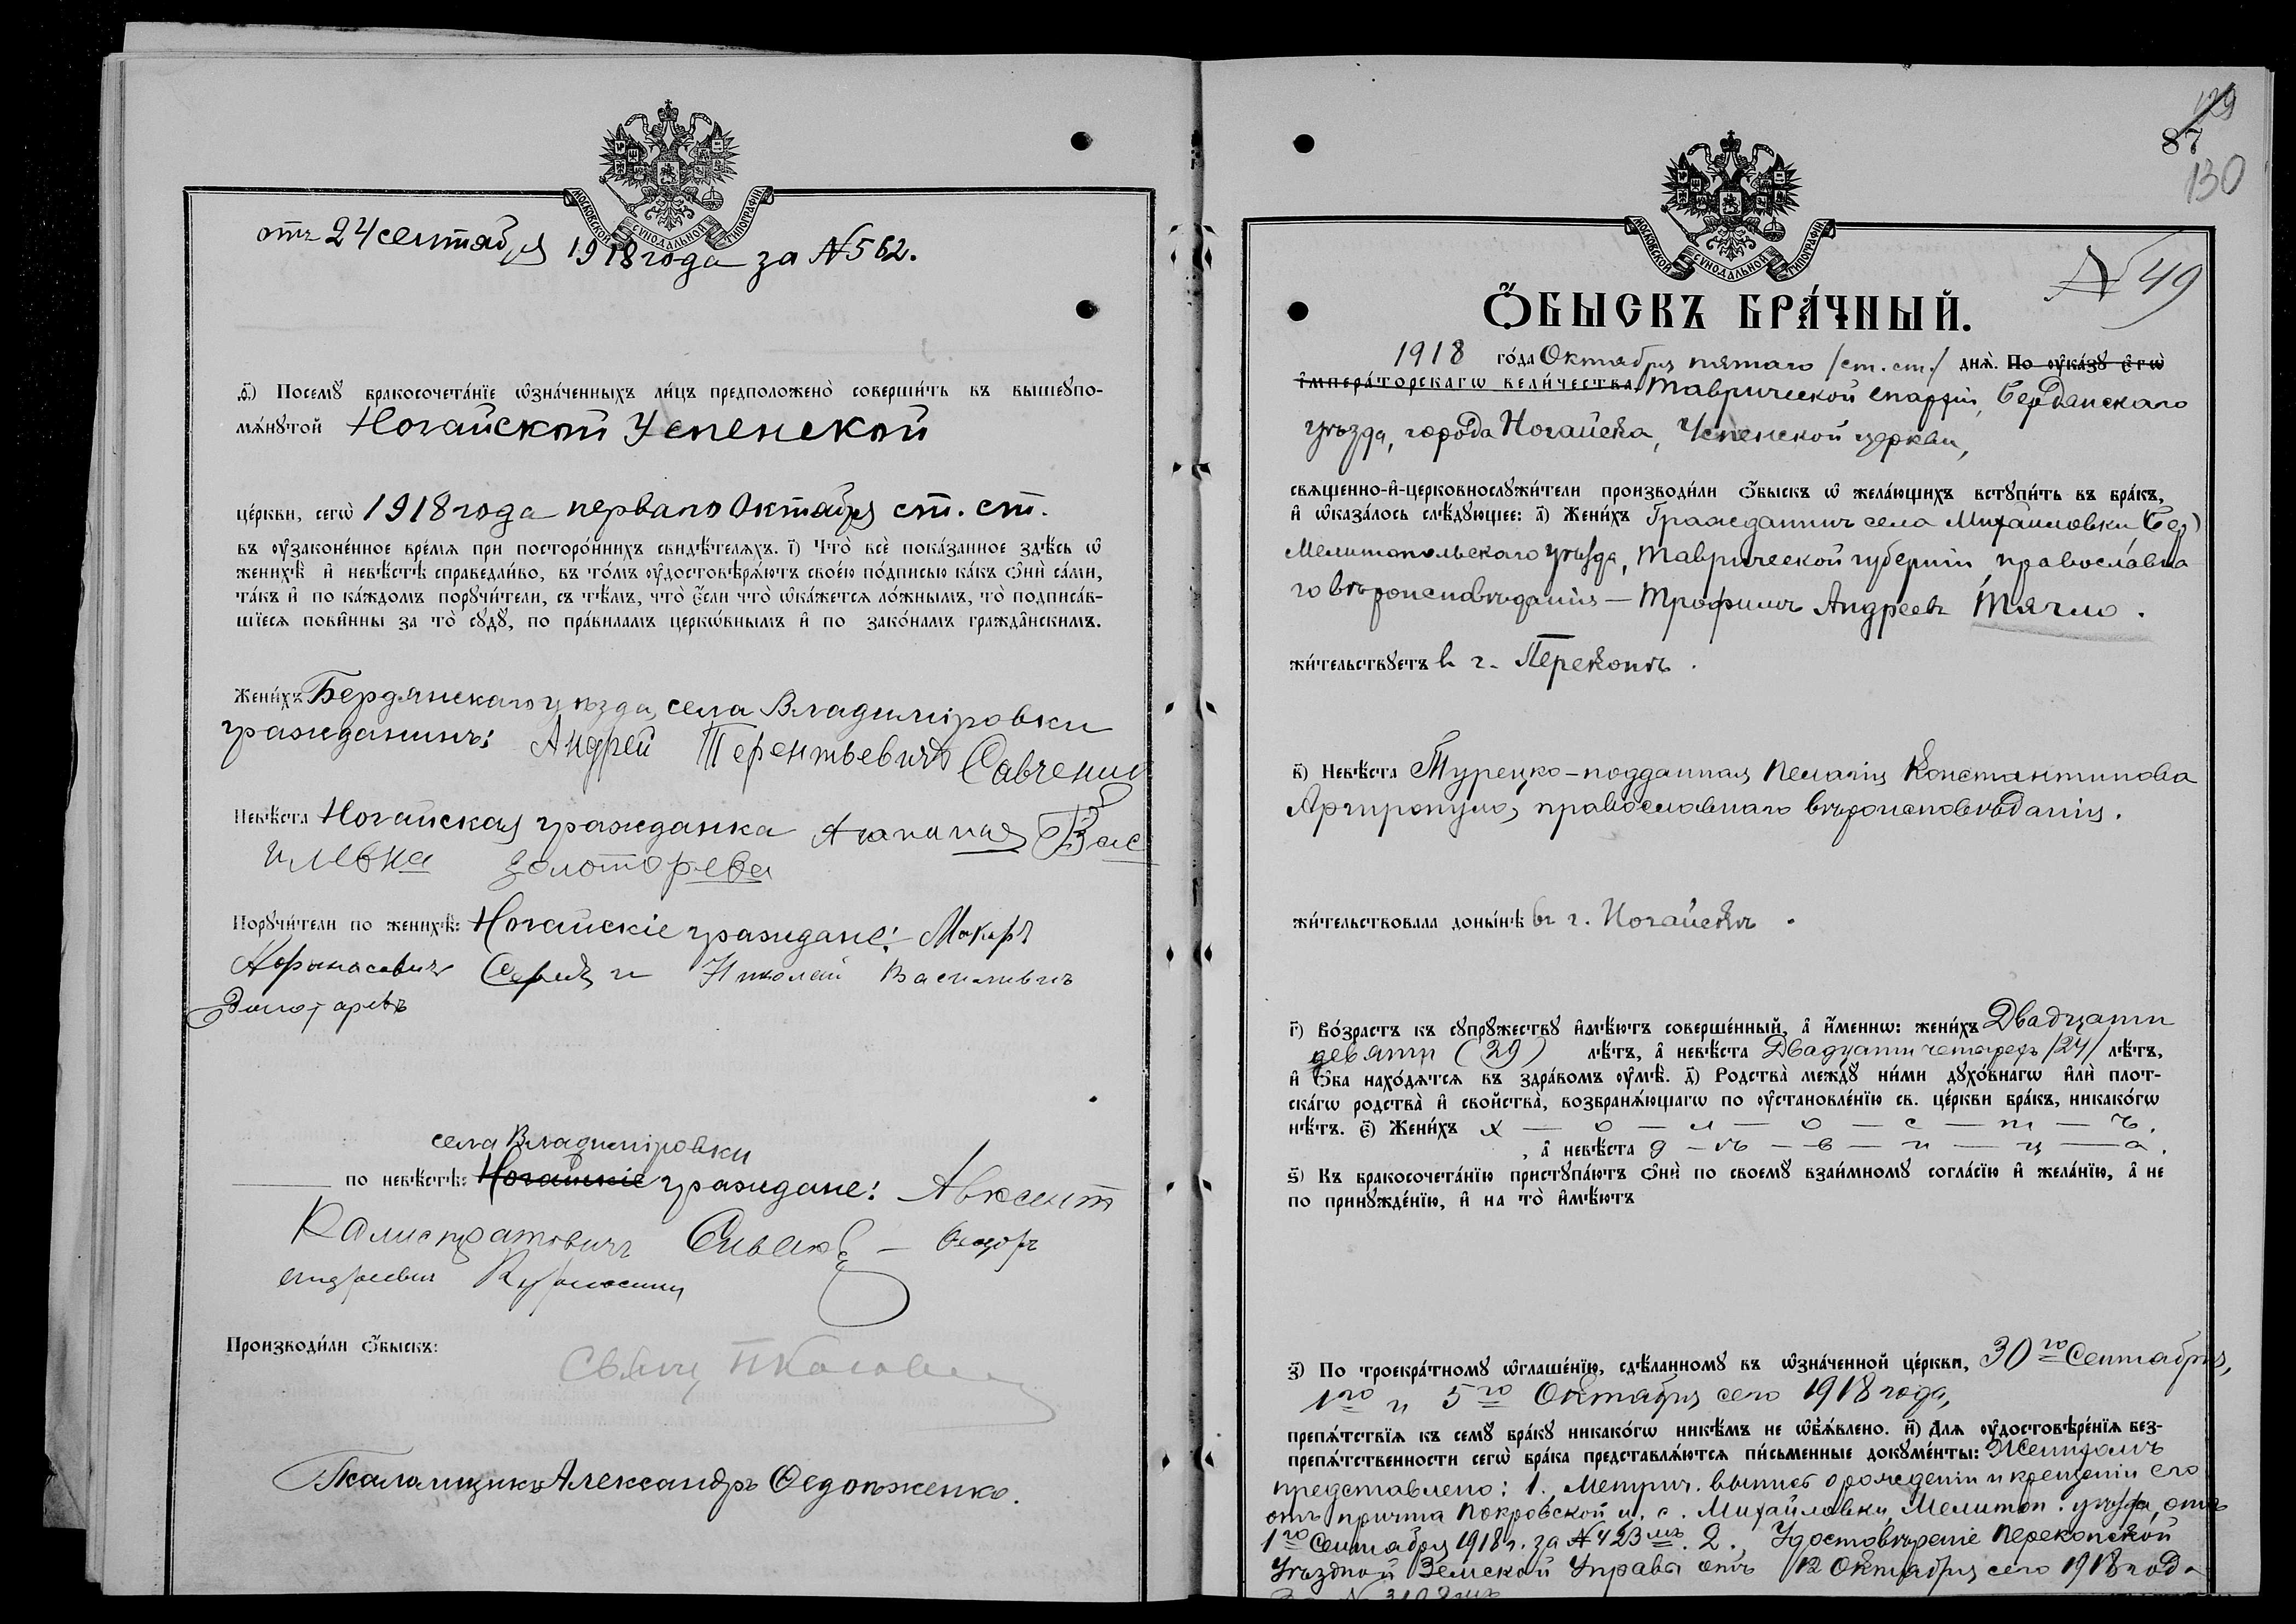 МОСКОВСКОЙ СѴНОДАЛЬНОЙ ТИПОГРАФІИ
отъ 24 сентября 1918 года за № 562.
д҃) Посемꙋ̀ бракосочета́нїе ѡ҆зна́ченныхъ ли́цъ предположено̀ соверши́ть въ вышеꙋпо-
мѧ́нꙋтой Ногайской Успенской
це́ркви, сегѡ̀ 1918 года перваго Октября ст. ст.
въ ѹ҆законе́нное вре́мѧ при посторо́ннихъ свидѣ́телѧхъ. і҃) Что̀ всѐ пока́занное здѣ́сь ѡ҆
женихѣ̀ и҆ невѣ́стѣ справедли́во, въ то́мъ ѹ҆достовѣрѧ́ютъ свое́ю по́дписью ка́къ ѻ҆нѝ са́ми,
та́къ и҆ по ка́ждомъ порꙋчи́тели, съ тѣ́мъ, что̀ є҆́сли что̀ ѡ҆ка́жетсѧ ло́жнымъ, то̀ подписа́в-
шїесѧ пови́нны за то̀ сꙋдꙋ̀, по пра́виламъ церко́внымъ и҆ по зако́намъ гражда́нскимъ.
Жени́хъ Бердянскаго уѣзда, села Владиміровки
гражданинъ: Андрей Терентьевичъ Савченко
Невѣ́ста Ногайская гражданка Агапия Вас
ильевна Золоторева
Порꙋчи́тели по женихѣ̀: Ногайскіе граждане: Макаръ
Афанасевичъ и Николай Василивичъ
Золотаревъ
села Владиміровки
по невѣ́стѣ: Ногайскіе граждане: Авксент
Калистратовичъ Сивакъ — Федоръ
Андреевич
Производи́ли ѻ҆́быскъ:
Свящ.
Псаломщикъ Александръ Федорженко.
129
87
130
МОСКОВСКОЙ СѴНОДАЛЬНОЙ ТИПОГРАФІИ
№ 49
Ѻ҆́БЫСКЪ БРА́ЧНЫЙ.
1918 го́да Октября пятаго /ст. ст./ днѧ̀. По ѹ҆ка́зꙋ Є҆гѡ̀
І҆мпера́торскагѡ Вели́чества Таврической епархіи, Бердянскаго
уѣзда, города Ногайска, Успенской церкви,
свѧще́нно-и҆-церковнослꙋжи́тели производи́ли ѻ҆́быскъ ѡ҆ жела́ющихъ встꙋпи́ть въ бра́къ,
и҆ ѡ҆каза́лось слѣ́дꙋющее: а҃) Жени́хъ Гражданинъ села Михайловки,
Мелитопольскаго уѣзда, Таврической губерніи, православна
го вѣроисповѣданія — Трофимъ Андреевъ Тягло.
жи́тельствꙋетъ въ г. Перекопѣ.
в҃) Невѣ́ста Турецко-подданная Пелагія Константинова
Аргиропуло, православнаго вѣроисповѣданія.
жи́тельствовала доны́нѣ въ г. Ногайскѣ.
г҃) Во́зрастъ къ сꙋпрꙋ́жествꙋ и҆мѣ́ютъ соверше́нный, а҆ и҆́меннѡ: жени́хъ Двадцати
девяти (29) лѣ́тъ, а҆ невѣ́ста Двадцати четырехъ /24/ лѣ́тъ,
и҆ ѻ҆́ба нахо́дѧтсѧ въ здра́вомъ ѹ҆мѣ̀. д҃) Родства̀ междꙋ̀ ни́ми дꙋхо́внагѡ и҆лѝ плот-
ска́гѡ родства̀ и҆ сво́йства̀, возбранѧ́ющагѡ по ѹ҆становле́нїю св. це́ркви бра́къ, никако́гѡ
нѣ́тъ. є҃) Жени́хъ х — о — л — о — с — т — ъ.
, а҆ невѣ́ста д — ѣ — в — и — ц — а.
ѕ҃) Къ бракосочета́нїю пристꙋпа́ютъ ѻ҆нѝ по своемꙋ̀ взаи́мномꙋ согла́сїю и҆ жела́нїю, а҆ не
по принꙋжде́нїю, и҆ на то̀ и҆мѣ́ютъ
з҃) По троекра́тномꙋ ѡ҆глаше́нїю, сдѣ́ланномꙋ въ ѡ҆зна́ченной це́ркви, 30го Сентября,
1го и 5го Октября сего 1918 года,
препѧ́тствїѧ къ семꙋ̀ бра́кꙋ никако́гѡ никѣ́мъ не ѡ҆б̾ѧ́влено. и҃) Длѧ ѹ҆достовѣре́нїѧ без-
препѧ́тственности сегѡ̀ бра́ка представлѧ́ютсѧ пи́сьменные докꙋме́нты: Женихомъ
представлено: 1. Метрич. выпись о рожденіи и крещеніи его
отъ причта Покровской ц. с. Михайловки, Мелитоп. уѣзда, отъ
1го Сентября 1918 г. за № 423мъ. 2., Удостовѣреніе Перекопской
Уѣздной Земской Управы отъ 12 Октября сего 1918 года